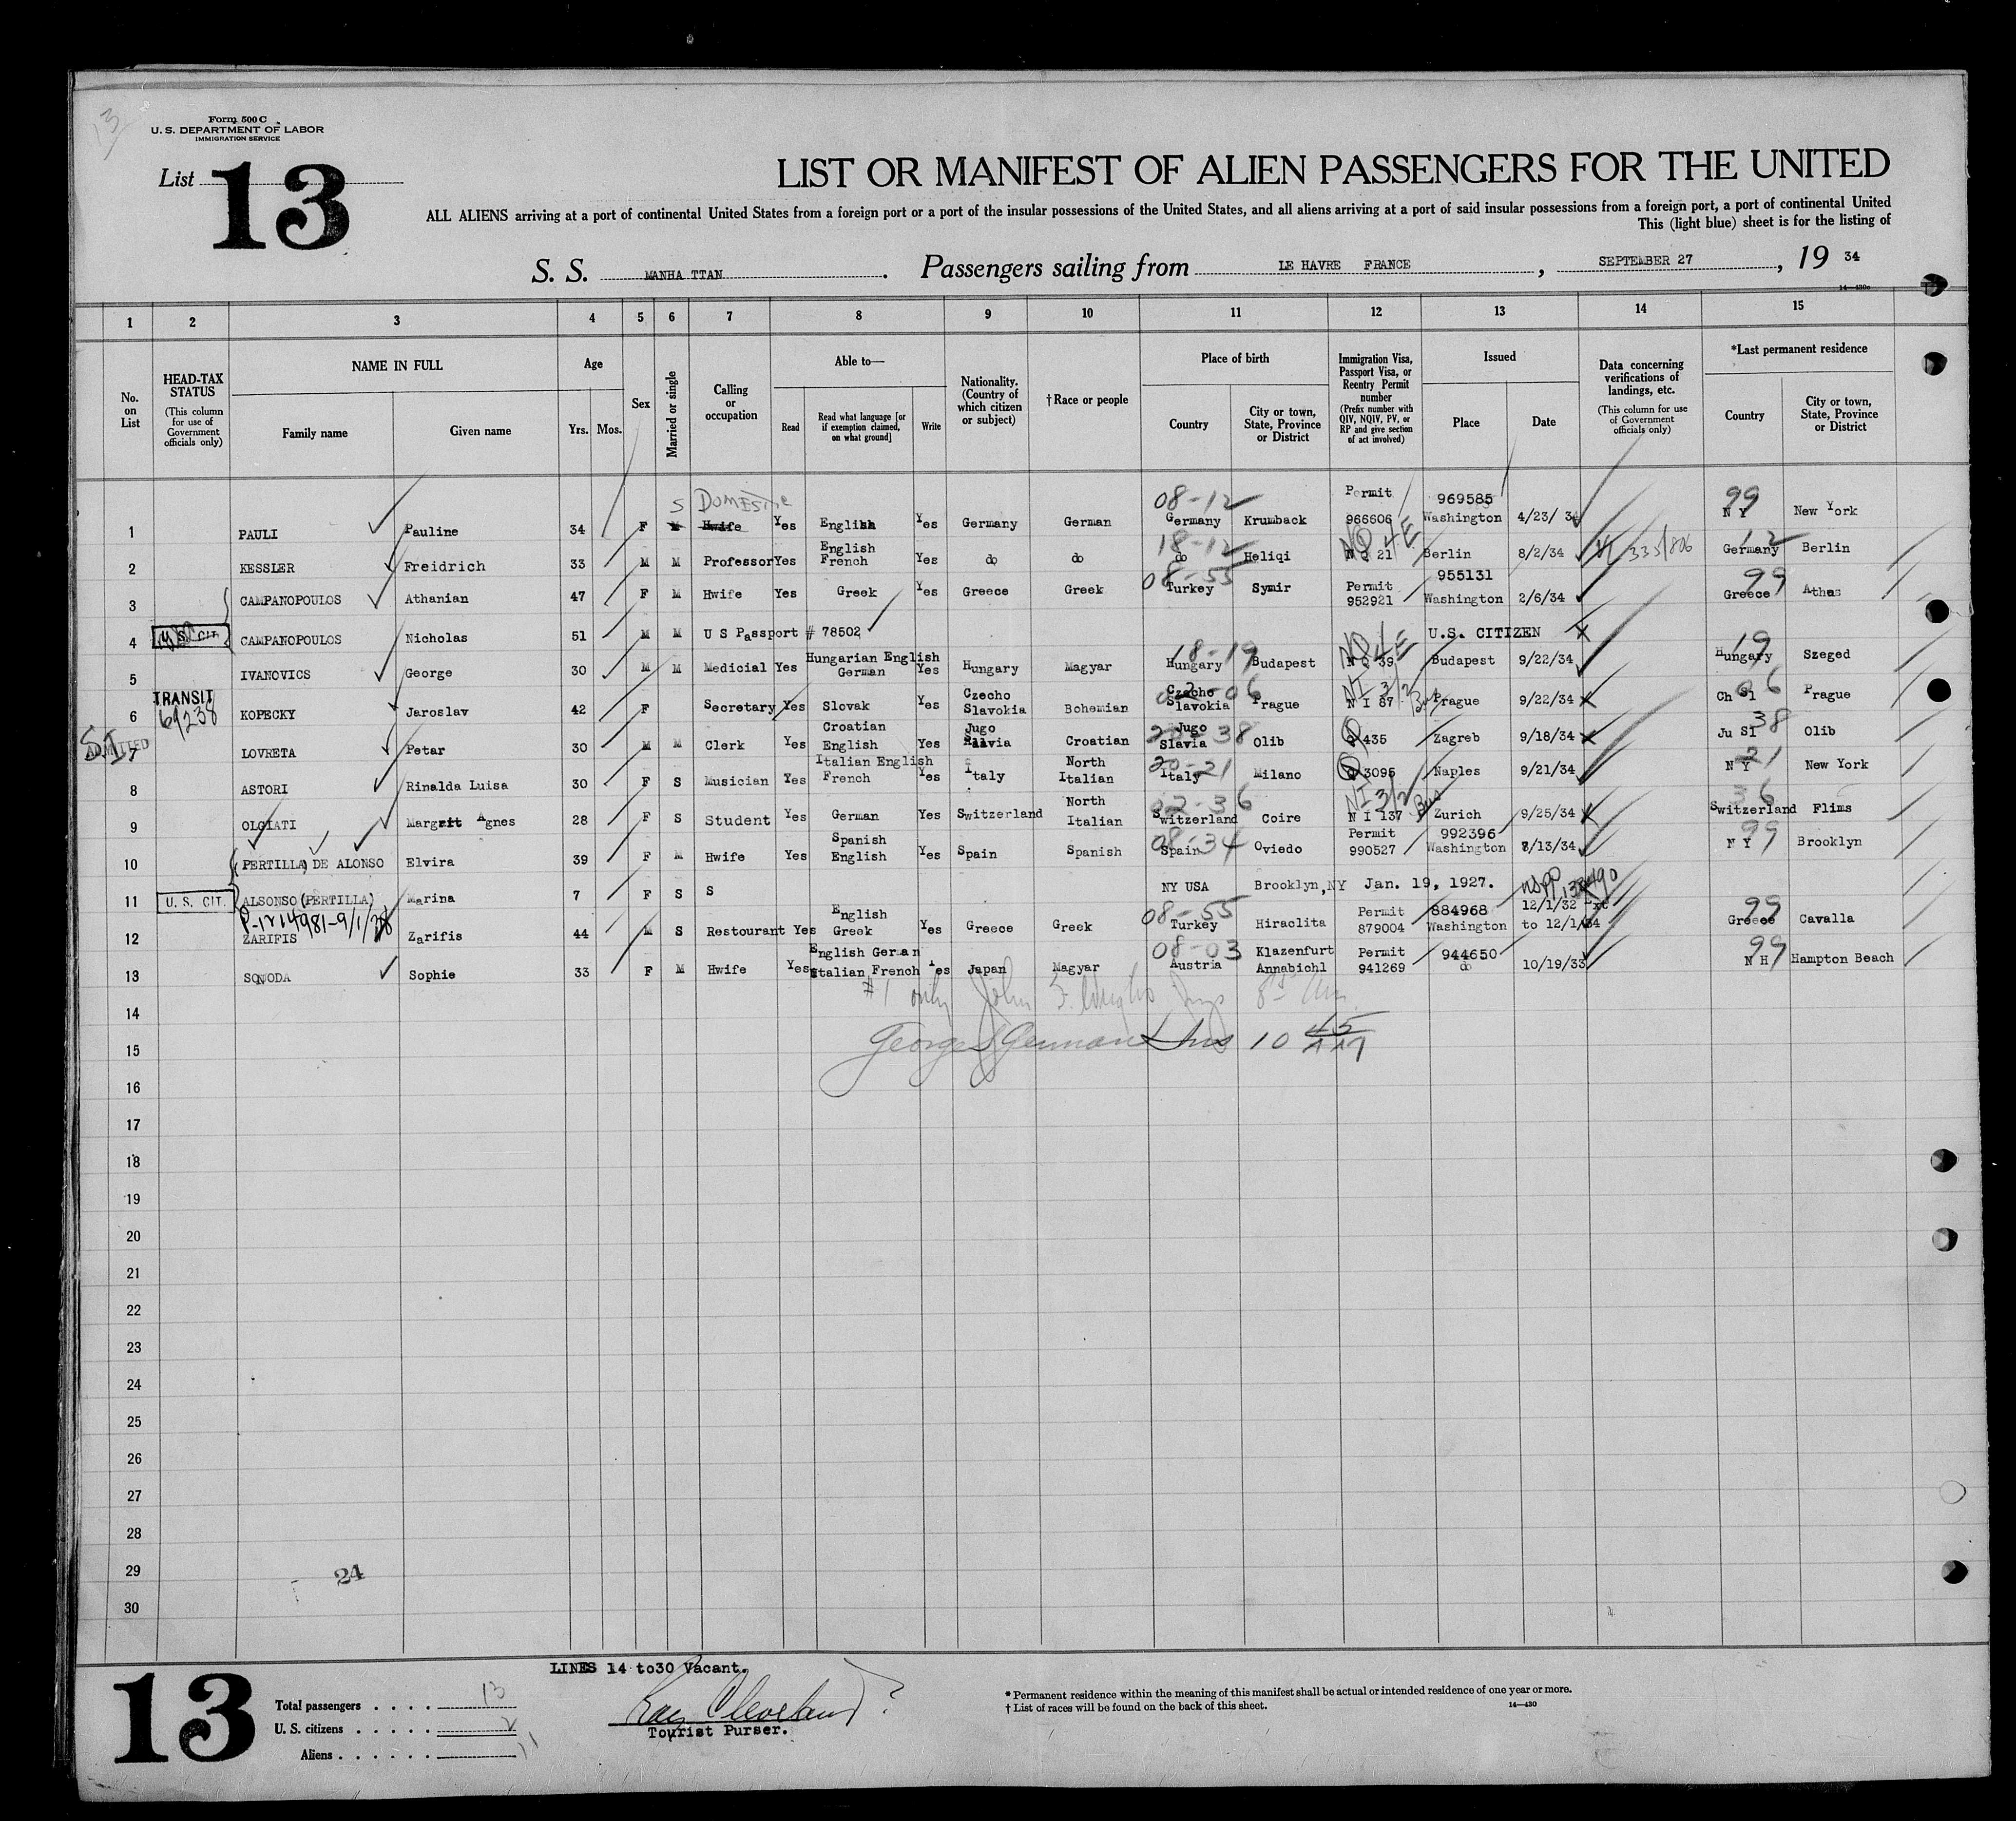 13
Form 500 C
U. S. DEPARTMENT OF LABOR
IMMIGRATION SERVICE
List 13
LIST OR MANIFEST OF ALIEN PASSENGERS FOR THE UNITED
ALL ALIENS arriving at a port of continental United States from a foreign port or a port of the insular possessions of the United States, and all aliens arriving at a port of said insular possessions from a foreign port, a port of continental United
This (light blue) sheet is for the listing of
S. S. MANHA TTAN. Passengers sailing from LE HAVRE FRANCE, SEPTEMBER 27, 19 34
14—430c
1 2 3 4 5 6 7 8 9 10 11 12 13 14 15
No. on List
HEAD-TAX STATUS (This column for use of Government officials only)
NAME IN FULL
Family name Given name
Age
Yrs. Mos.
Sex
Married or single
Calling or occupation
Able to—
Read Read what language [or if exemption claimed, on what ground] Write
Nationality. (Country of which citizen or subject)
†Race or people
Place of birth
Country City or town, State, Province or District
Immigration Visa, Passport Visa, or Reentry Permit number (Prefix number with QIV, NQIV, PV, or RP and give section of act involved)
Issued
Place Date
Data concerning verifications of landings, etc. (This column for use of Government officials only)
*Last permanent residence
Country City or town, State, Province or District
S Domestic 08-12 Permit 969585 99
1 PAULI Pauline 34 F M Hwife Yes English Yes Germany German Germany Krumback 966606 Washington 4/23/ 34 N Y New York
English 18-12 NQ 4E 12
2 KESSLER Freidrich 33 M M Professor Yes French Yes do do do Heliqi N Q 21 Berlin 8/2/34 335/806 Germany Berlin
08-55 Permit 955131 99
3 CAMPANOPOULOS Athanian 47 F M Hwife Yes Greek Yes Greece Greek Turkey Symir 952921 Washington 2/6/34 Greece Athes
4 U. S. CIT. CAMPANOPOULOS Nicholas 51 M M U S Passport # 78502 U.S. CITIZEN
Hungarian English 18-19 NQ 4E 19
5 IVANOVICS George 30 M M Medicial Yes German Yes Hungary Magyar Hungary Budapest N Q 39 Budapest 9/22/34 Hungary Szeged
TRANSIT Czecho Czecho 02-06 NI 3/2 Bus 06
6 69238 KOPECKY Jaroslav 42 F Secretary Yes Slovak Yes Slavokia Bohemian Slavokia Prague N I 87 Prague 9/22/34 Ch Sl Prague
S.I. ADMITTED Croatian Jugo Jugo 38 38
7 LOVRETA Petar 30 M M Clerk Yes English Yes Slavia Croatian Slavia Olib Q 435 Zagreb 9/18/34 Ju Sl Olib
Italian English North 20-21 21
8 ASTORI Rinalda Luisa 30 F S Musician Yes French Yes Italy Italian Italy Milano Q 3095 Naples 9/21/34 N Y New York
North 02-36 NI 3/2 Bus 36
9 OLGIATI Margrit Agnes 28 F S Student Yes German Yes Switzerland Italian Switzerland Coire N I 137 Zurich 9/25/34 Switzerland Flims
Spanish 08-34 Permit 992396 99
10 (PERTILLA) DE ALONSO Elvira 39 F M Hwife Yes English Yes Spain Spanish Spain Oviedo 990527 Washington 8/13/34 N Y Brooklyn
11 U. S. CIT. ALSONSO (PERTILLA) Marina 7 F S S NY USA Brooklyn,NY Jan. 19, 1927.
P-1214981-9/1/38 English 08-55 Permit 884968 12/1/32 Ext 99
12 ZARIFIS Zarifis 44 M S Restourant Yes Greek Yes Greece Greek Turkey Hiraclita 879004 Washington to 12/1/34 Greece Cavalla
English German 08-03 Klazenfurt Permit 944650 99
13 SONODA Sophie 33 F M Hwife Yes Italian French Yes Japan Magyar Austria Annabichl 941269 do 10/19/33 N H Hampton Beach
#1 only John
14
George German Ins 10 45
15
16
17
18
19
20
21
22
23
24
25
26
27
28
29
24
30
LINES 14 to30 Vacant.
13
Total passengers . . . . 13
U. S. citizens . . . . . 2
Aliens . . . . . . 11
Ray Cleveland
Tourist Purser.
* Permanent residence within the meaning of this manifest shall be actual or intended residence of one year or more.
† List of races will be found on the back of this sheet.
14—430